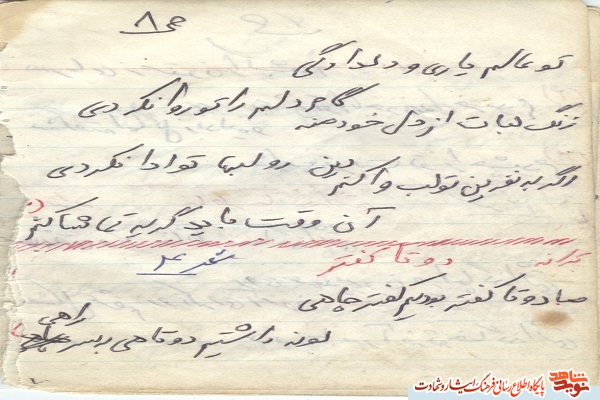 ص ۸
تو عالم یاری و دلدادگی
گاهی دلم را تو روا نکردی
زنگ لبات از دل خود
اگر به نفرین تو لب وا کنم
بین رو لبها تو ادا نکردی
آن وقت باید گریه تماشا کنم
ترانه دو تا کفتر شعر از
ما دو تا کفتر بودیم کفتر چاهی
لونه داشتیم دو تاهی بسر راهی
نوید شاهد
پایگاه اطلاع رسانی فرهنگ ایثار و شهادت